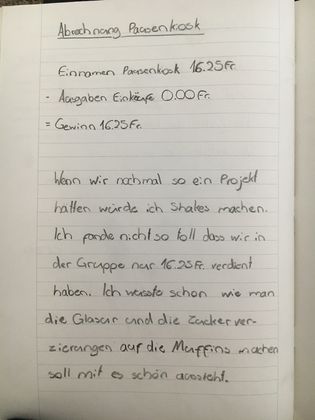 Abrechnung Pausenkiosk
Einnamen Pausenkiosk 16.25 Fr.
- Ausgaben Einkäufe 0.00 Fr.
= Gewinn 16.25 Fr.
Wenn wir nochmal so ein Projekt
hätten würde ich Shakes machen.
Ich fande nicht so toll dass wir in
der Gruppe nur 16.25 Fr. verdient
haben. Ich wusste schon wie man
die Glasur und die Zuckerver-
zierungen auf die Muffins machen
soll mit es schön aussieht.